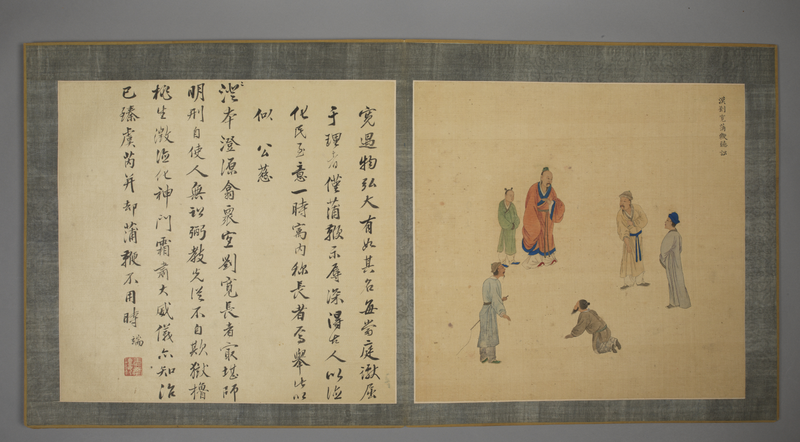 漢劉寬蒲鞭
寬遇物弘大有如其名每當庭讞屈
于理者僅蒲鞭示辱深得古人以德
化民至意一時寓內稱長者焉舉此以
似 公慈
澄本澄源翕衆宜劉寬長者最堪師
明刑自使人無訟弼教先從不自欺獄櫓
桃生徵德化神門霜肅大威儀亦知治
已臻虞芮并却蒲鞭不用時